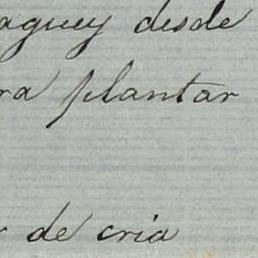 aguey desde
ra plantar
r de cria